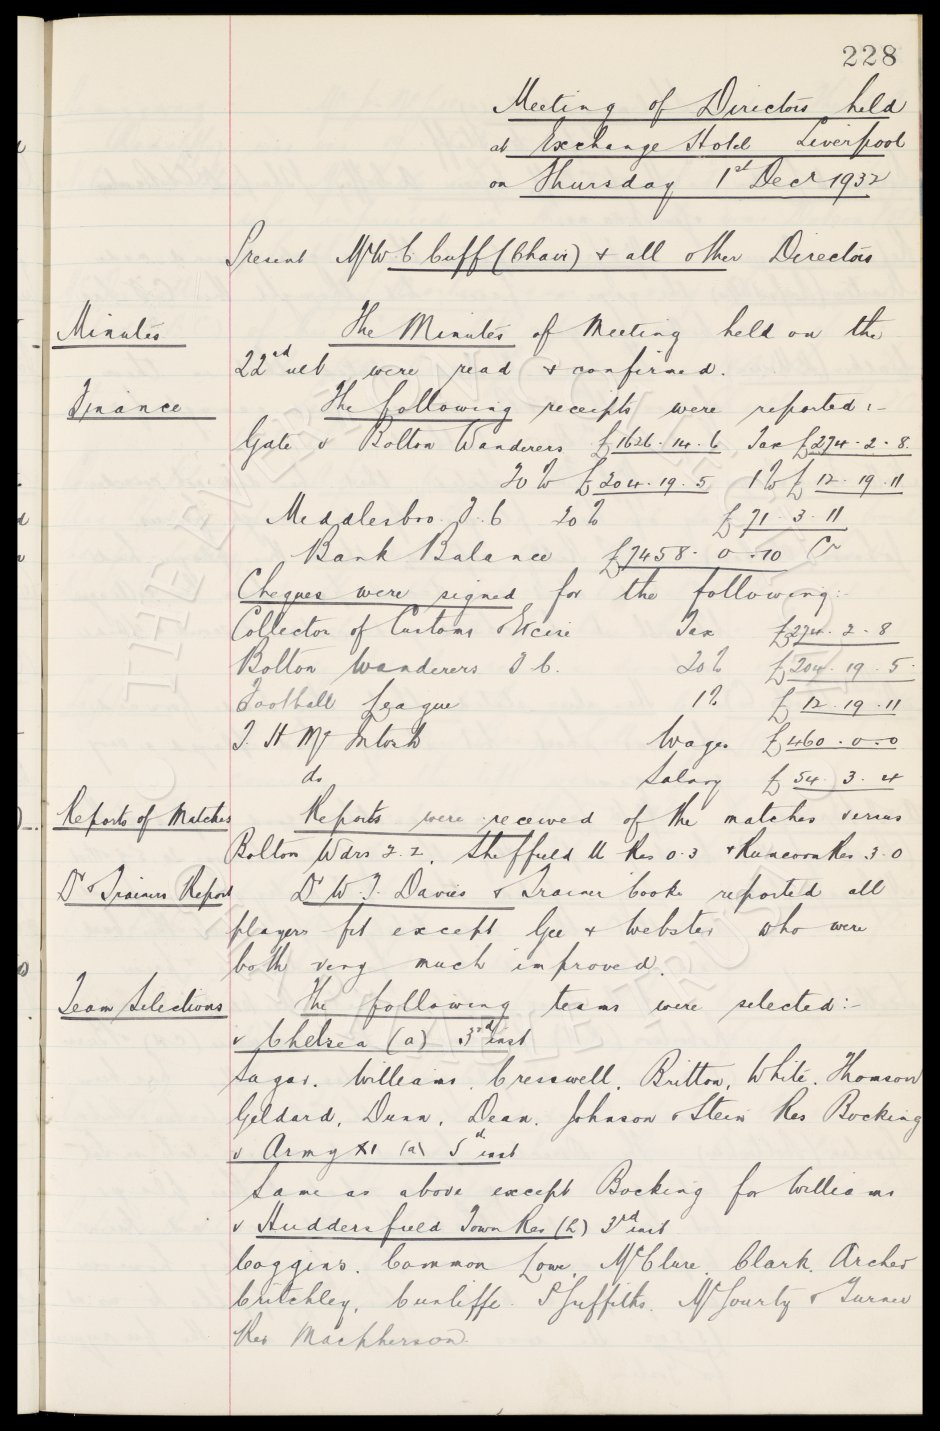 228
Meeting of Directors held
at Exchange Hotel Liverpool
on Thursday 1st Decr 1932
Present Mr W. C. Cuff (Chair) & all other Directors
Minutes The Minutes of Meeting held on the
22nd ult were read & confirmed.
Finance The following receipts were reported:-
Gate v Bolton Wanderers £1626.14.6 Tax £274.2.8
20% £204.19.5 1% £12.19.11
Middlesbro. F.C 20% £71.3.11
Bank Balance £7458.0.10 Cr
Cheques were signed for the following:-
Collector of Customs & Excise Tax £274.2.8
Bolton Wanderers F.C. 20% £204.19.5
Football League 1% £12.19.11
T. H. Mc Intosh Wages £460.0.0
do Salary £54.3.4
Reports of Matches Reports were received of the matches versus
Bolton Wdrs 2.2, Sheffield U Res 0.3 & Runcorn Res 3.0
Dr & Trainers Report Dr W. J. Davies & Trainer Cooke reported all
players fit except Gee & Webster who were
both very much improved.
Team Selections The following teams were selected:-
v Chelsea (a) 3rd inst
Sagar. Williams, Cresswell, Britton, White. Thomson
Geldard, Dunn, Dean. Johnson & Stein Res Bocking
v Army XI (a) 5th inst
Same as above except Bocking for Williams
v Huddersfield Town Res (h) 3rd inst
Coggins. Common Lowe, McClure, Clark, Archer
Critchley, Cunliffe. Griffiths. McGourty & Turner
Res Macpherson.
THE EVERTON